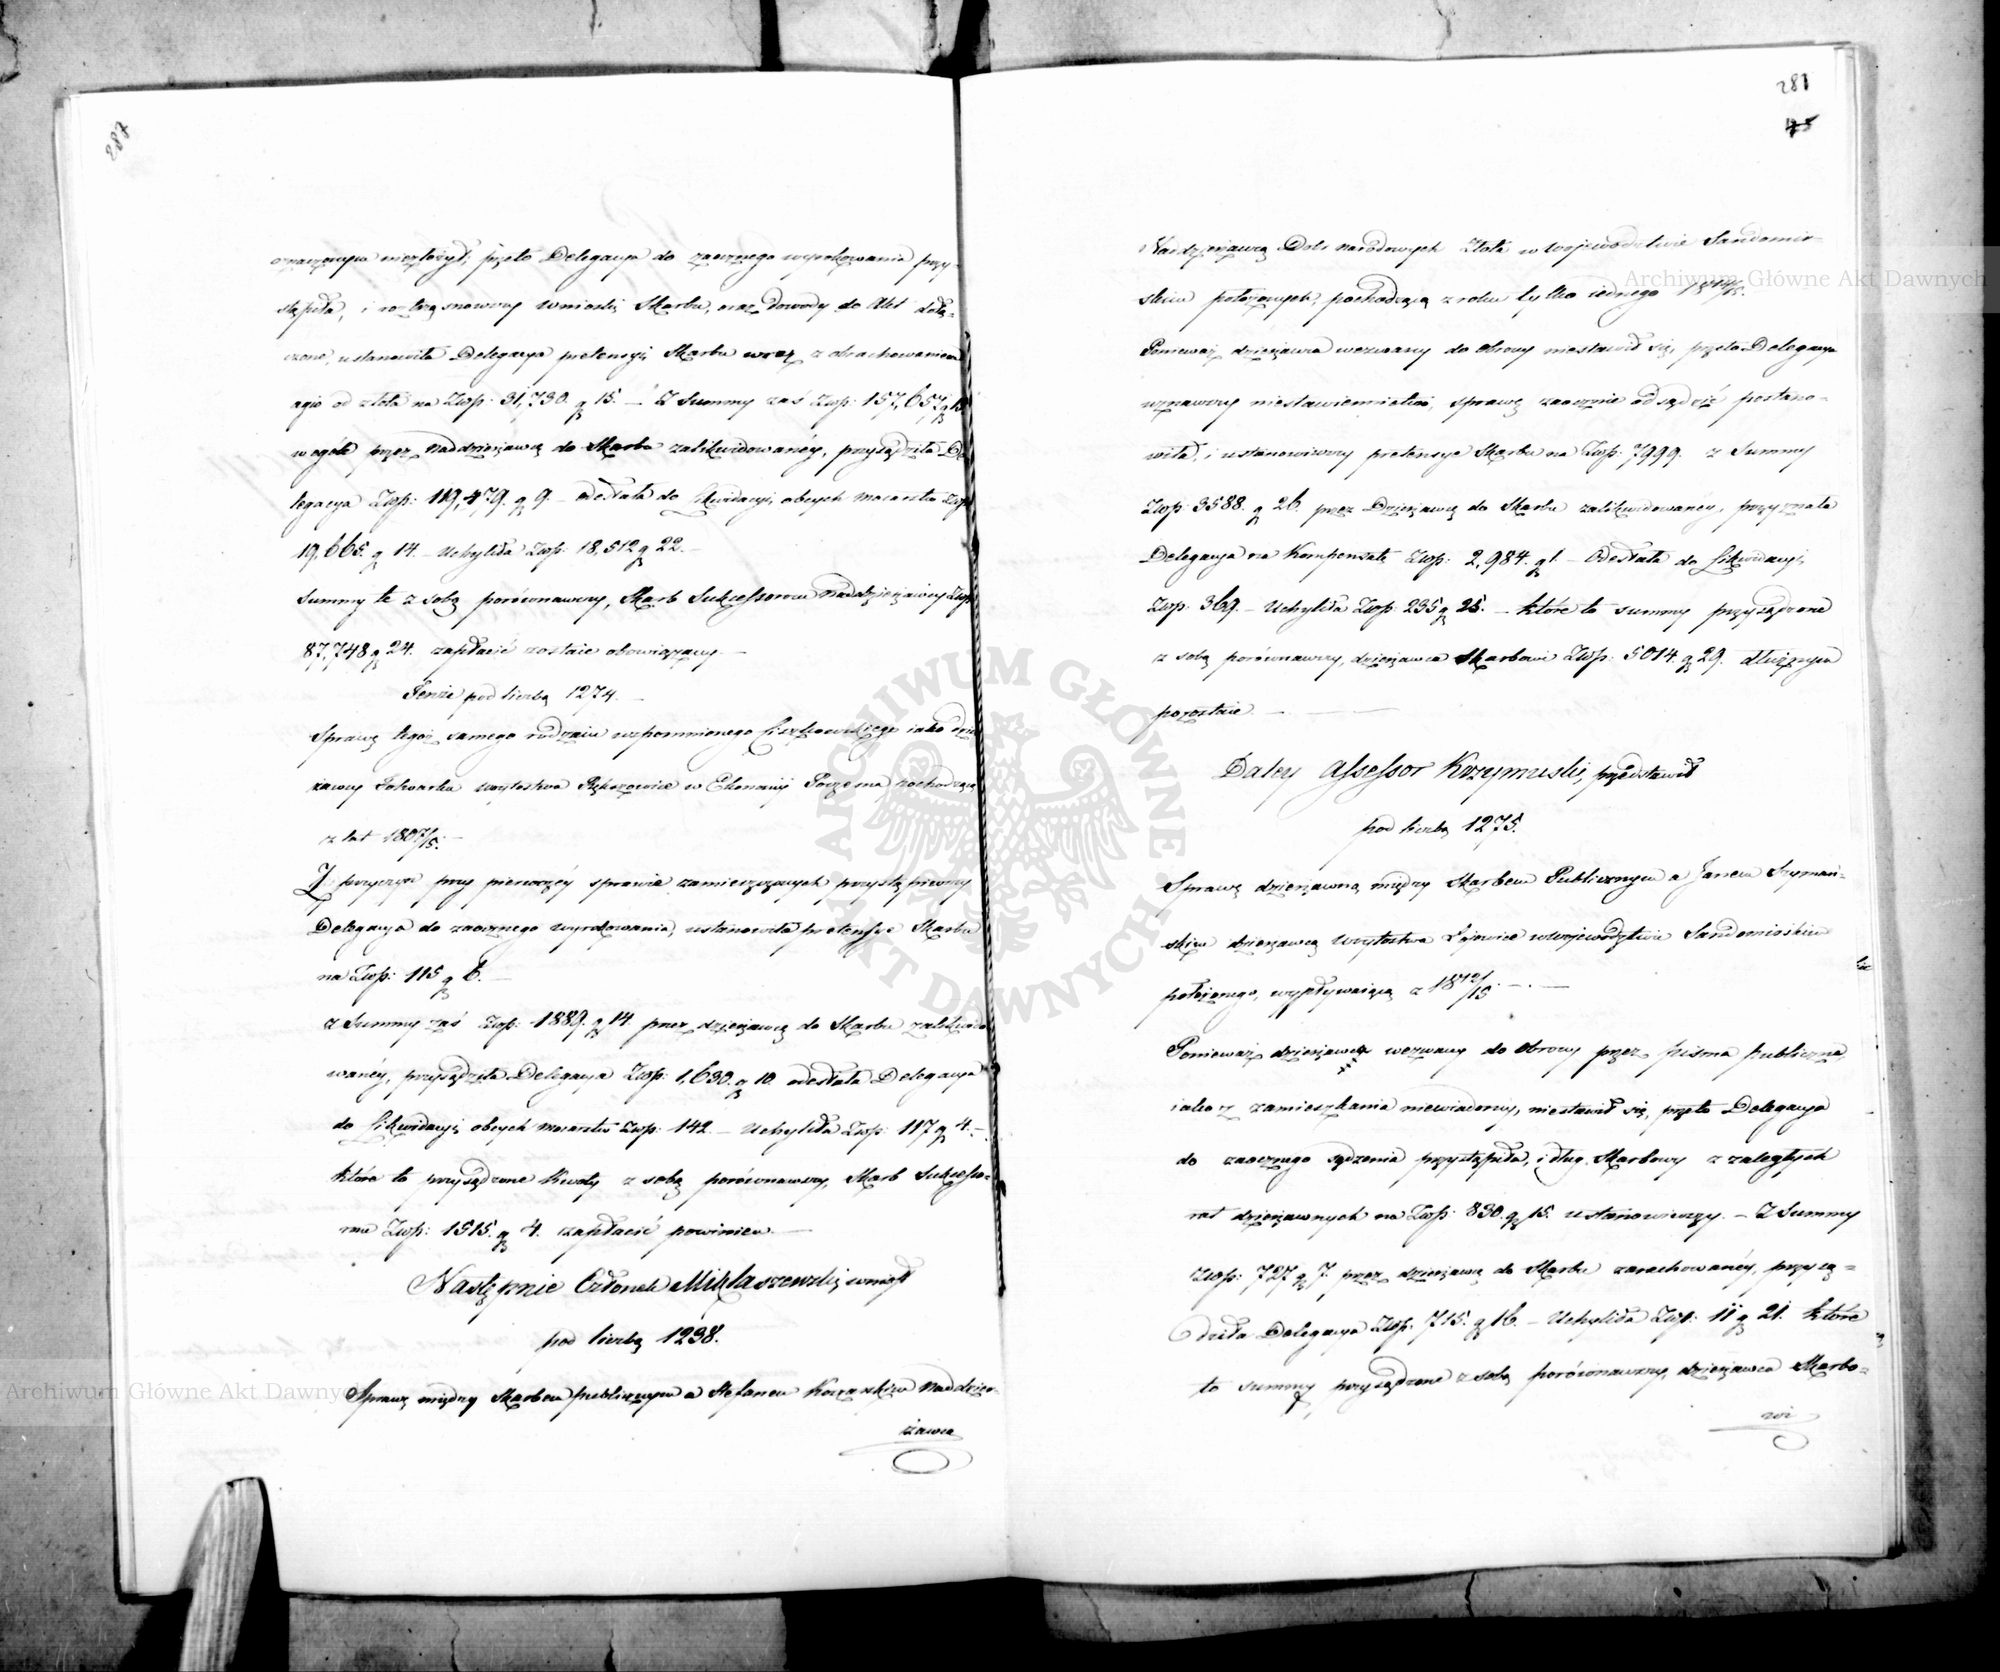 287
niezłożył, przeto Delegacya do zaocznego wyrokowania przy-
stąpiła, i roztrząsnąwszy wnioski Skarbu, oraz dowody do Akt dołą-
czone, ustanowiła Delegacya pretensyį Skarbu wraz z obrachowaniem
agio od złota na Złłp: 31,730. g 15. — Z Summy zaś Złłp: 157,657 g 15
w ogóle przez Naddzierżawcę do Skarbu zalikwidowanéy, przysądziła De
legacya Złłp: 119,479. g 9. — odesłała do Likwidacyi obcych mocarstw Złłp
19,665. g 14. — Uchyliła Złłp: 18,512 g 22. —
Summy te z sobą porównawszy, Skarb Sukcessorom Naddzierżawcy Złłp
87,748 g 24. zapłacić zostaie obowiązany —
Tenże pod liczbą 1274. —
Sprawę tegoż samego rodzaiu wspomnionego Liszkowskiego iako dzier
żawcy folwarku wóytostwa w Ekonomij pochodzącą
z lat 1807/15. —
Z przyczyn przy pierwszéy sprawie zamieszczonych przystąpiwszy
Delegacya do zaocznego wyrokowania, ustanowiła pretensye Skarbu
na Złłp: 115 g 6. —
z Summy zaś Złłp: 1889. g 14. przez dzierżawcę do Skarbu zalikwido
wanéy, przysądziła Delegacya Złłp: 1,630. g 10. odesłała Delegacya
do Likwidacyi obcych mocarstw Złłp: 142. — Uchyliła Złłp: 117 g 4. —
które to przysądzone kwoty z sobą porównawszy, Skarb Sukcesso-
rom Złłp: 1515. g 4. zapłacić powinien. —
Następnie Członek Miklaszewski, wniósł
pod liczbą 1238.
Sprawę między Skarbem publicznym a Stefanem Naddzier-
żawcą
281
75
Naddzierżawcą Dóbr narodowych Złota w Województwie Sandomir-
skim położonych, pochodzącą z roku tylko iednego 1814/15.
Ponieważ dzierżawca wezwany do obrony niestawił się, przeto Delegacya
uznawszy niestawiennictwo, sprawę zaocznie odsądzić postano-
wiła, i ustanowiwszy pretensye Skarbu na Złłp: 7999. z Summy
Złłp: 3588. g 26. przez Dzierżawcę do Skarbu zalikwidowanéy, przyznała
Delegacya na Kompensatę Złłp: 2,984. g 1. — Odesłała do Likwidacyi
Złłp: 369. — Uchyliła Złłp: 235 g 25. — które to summy przysądzone
z sobą porównawszy, dzierżawca Skarbowi Złłp: 5014. g 29. dłużnym
pozostaie. —
Daley Assessor Krzymuski, przedstawił
pod liczbą 1275.
Sprawę dzierżawną między Skarbem Publicznym a Janem Szymań-
skim dzierżawcą Wóytostwa Łojewice w Województwie Sandomirskim
położonego, wypływaiącą z 1812/15. — . —
Ponieważ dzierżawca wezwany do obrony przez pisma publiczne,
iako z zamieszkania niewiadomy, niestawił się, przeto Delegacya
do zaocznego sądzenia przystąpiła, i dług Skarbowy z zaległych
rat dzierżawnych na Złłp: 830. g 15. ustanowiwszy. — Z Summy
Złłp: 727 g 7. przez dzierżawcę do Skarbu zarachowanéy, przysą-
dziła Delegacya Złłp: 715. g 16. — Uchyliła Złłp: 11 g 21. które
to summy przysądzone z sobą porównawszy, dzierżawca Skarbo-
wi
Archiwum Główne Akt Dawnych
Archiwum Główne Akt Dawnych
ARCHIWUM GŁÓWNE AKT DAWNYCH